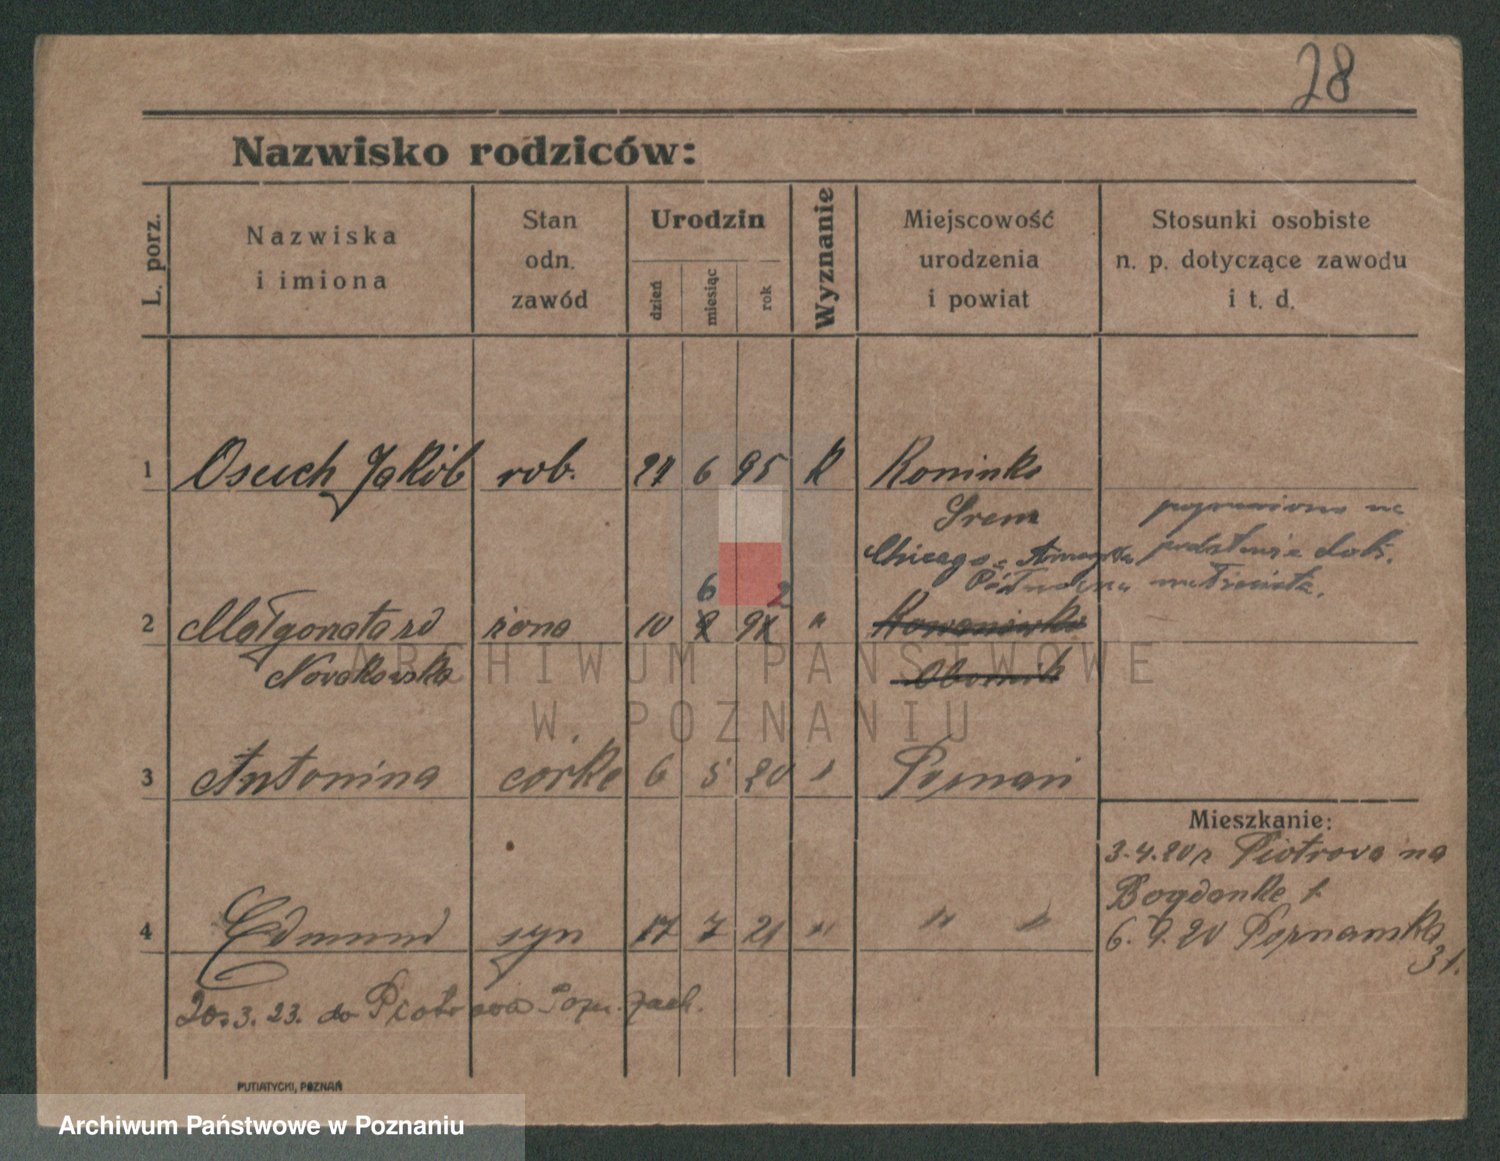 28
Nazwisko rodziców:
L. porz.
Nazwiska
i imiona
Stan
odn.
zawód
Urodzin
dzień
miesiąc
rok
Wyznanie
Miejscowość
urodzenia
i powiat
Stosunki osobiste
n. p. dotyczące zawodu
i t. d.
1 Osuch Jakób rob. 6 95 K Koninko
Śrem
Chicago
Północna
6 2
2 Małgorzata żona 10 9 "
Nowakowska
3 Antonina córka 6 5 20 " Poznań
Mieszkanie:
3.4.20 Piotrowo na
Bogdanke 1
4 Edmund syn 17 7 21 " " "
6.9.20 Poznańska
31.
20.3.23. do Piotrowa Pozn. zach.
PUTIATYCKI, POZNAŃ
ARCHIWUM PAŃSTWOWE
W POZNANIU
Archiwum Państwowe w Poznaniu